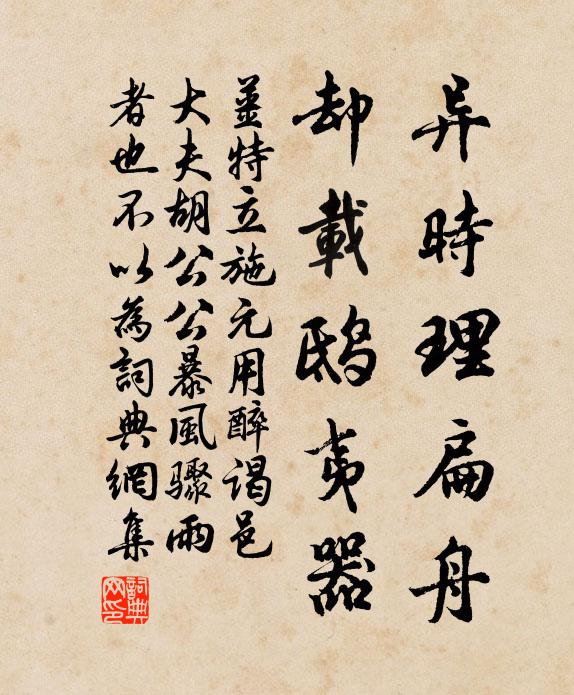 异時理扁舟
却載鴟夷器
薑特立施元用醉謁邑
大夫胡公公暴風驟雨
者也不以為詞典網集
詞典網印